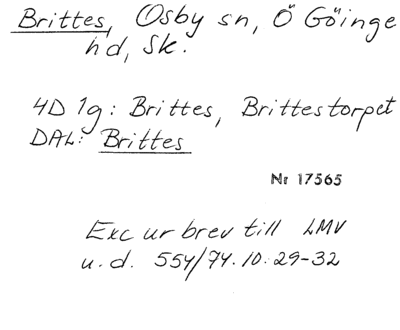 Brittes, Osby sn, Ö Göinge
hd, Sk.
4D 1g: Brittes, Brittestorpet
DAL: Brittes
Nr 17565
Exc ur brev till LMV
u.d. 554/74.10.29-32